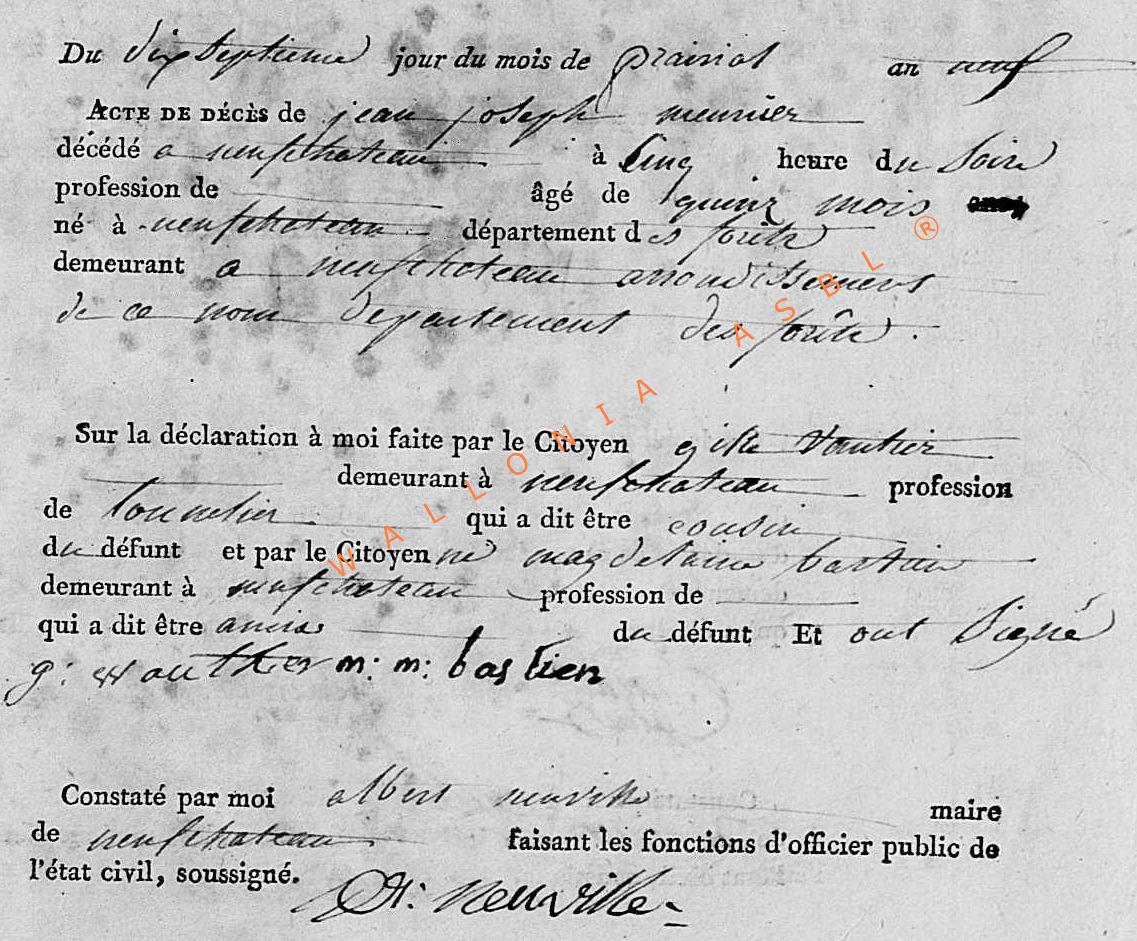 Du dixseptieme jour du mois de prairial an neuf
ACTE DE DÉCÈS de jean joseph meunier
décédé a neufchateau à Cinq heure du Soire
profession de âgé de quinz mois
né à neufchateau département des forêts
demeurant a neufchateau arrondissement
de ce nom departement des forêts.
Sur la déclaration à moi faite par le Citoyen gille Vautier
demeurant à neufchateau profession
de tonnelier qui a dit être cousin
du défunt et par le Citoyenne magdelaine bastien
demeurant à neufchateau profession de
qui a dit être amies du défunt Et ont Signé
g: wauthier m: m: bastien
Constaté par moi albert neuville maire
de neufchateau faisant les fonctions d'officier public de
l'état civil, soussigné.
A: Neuville
WALLONIA ASBL ®